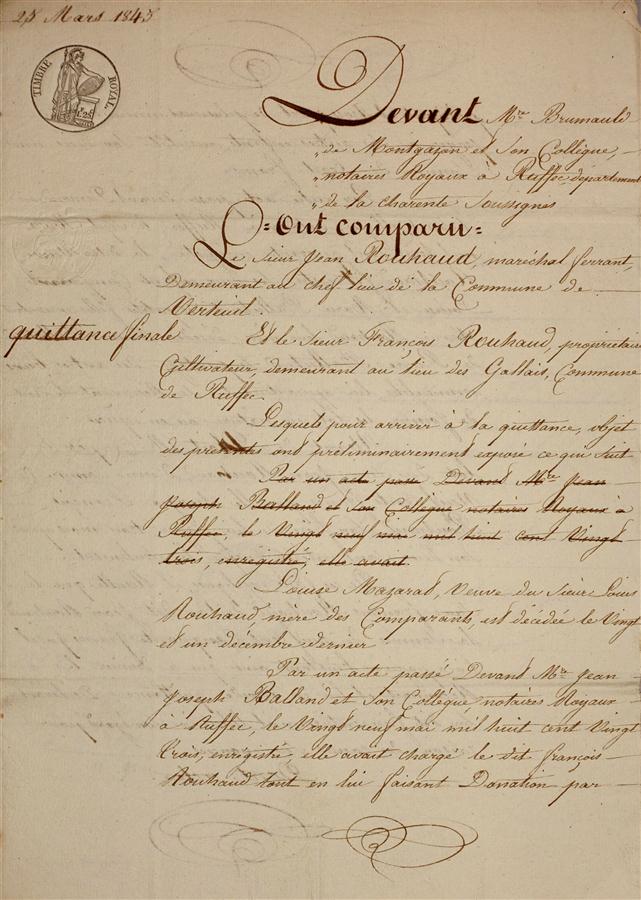 25 Mars 1845
TIMBRE ROYAL
1.25
Devant Mre Brumauld
de Montgazon et Son Collègue,
notaires Royaux à Ruffec, departement
de la charente Soussignés
=Ont comparu=
Le Sieur Jean Rouhaud, maréchal ferrant,
Demeurant au chef lieu de la Commune de
Verteuil.
quittance finale
Et le Sieur François Rouhaud, propriétaire
Cultivateur, demeurant au lieu des Gallais, Commune
de Ruffec.
Lesquels pour arriver à la quittance, objet
des presentes ont préliminairement exposé ce qui suit
Par un acte passé Devand Mre Jean
Joseph Balland et Son Collègue notaires Royaux à
Ruffec, le Vingt neuf mai mil huit cent Vingt
trois, enregistré, elle avait
Louise Mazarad, Veuve du Sieur Louis
Rouhaud mère des Comparants, est décédée le Vingt
et un décembre dernier
Par un acte passé Devand Mre Jean
Joseph Balland et Son Collègue, notaires Royaux
à Ruffec, le Vingt neuf mai mil huit cent Vingt
trois, enregistré elle avait chargé le dit françois
Rouhaud tout en lui faisant Donation par